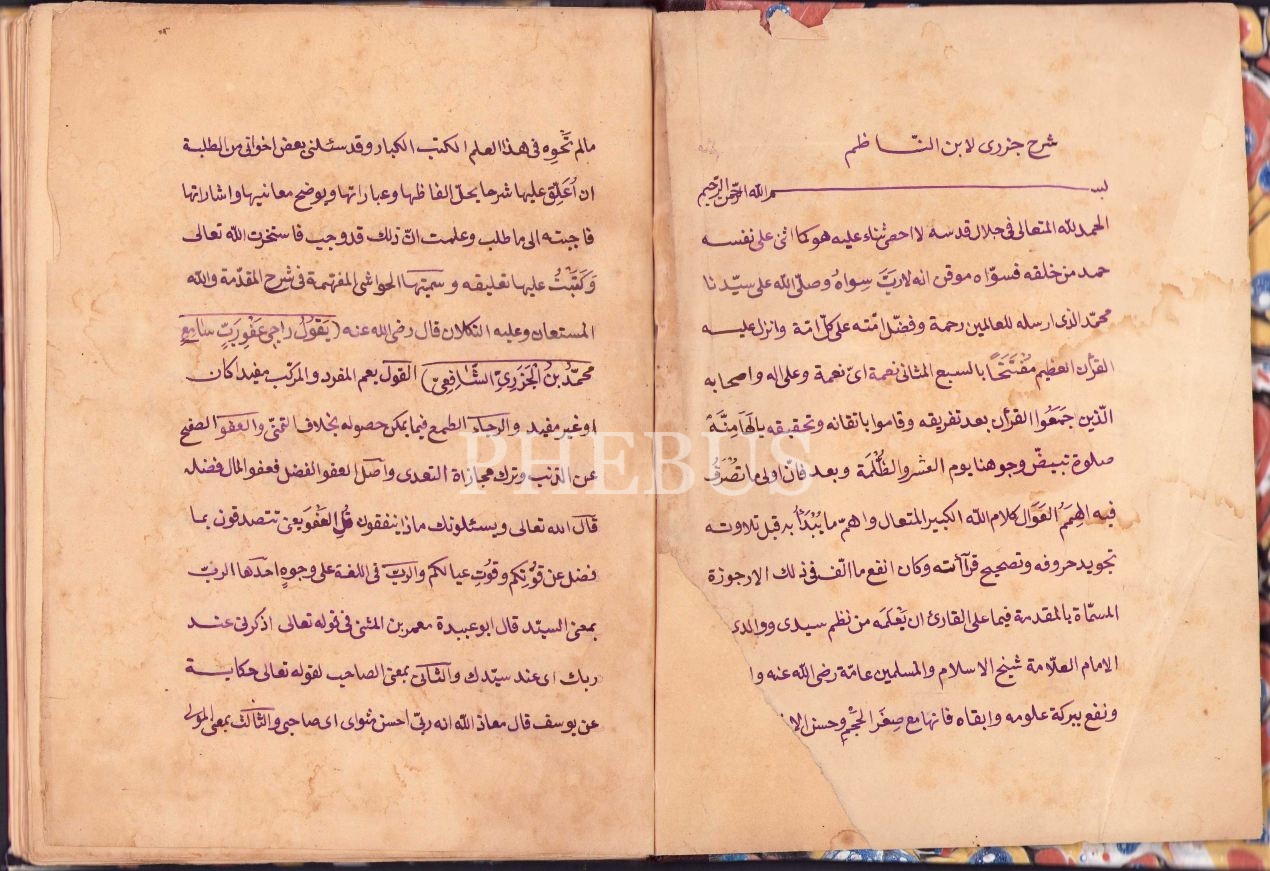 شرح جزرى لابن النّاظم
بسم الله الرّحمن الرّحيم
الحمد للّه المتعالى فى جلال قدسه لا احصى ثناء عليه هو كما اثنى على نفسه
حمد من خلقه فسوّاه موقن انه لا ربّ سواهُ وصلّى اللّه على سيّدنا
محمّد الذى ارسله للعالمين رحمة وفضّل امّته على كلّ امّة وانزل عليه
القرأن العظيم مفتتحًا بالسبع المثانى نعمة اىّ نعمة وعلى اله واصحابه
الّذين جَمَعُوا القرأن بعد تفريقه وقاموا باتقانه وتحقيقه
صلوة تبيضّ وجوهنا يوم العشر والظُّلْمَة وبعد فانّ اولى ما تُصْرَفُ
فيه الهِمَمُ العَوَال كلام اللّه الكبير المتعال واهمّ ما يُبْدَأُ به قبل تلاوته
تجويد حروفه وتصحيح قرأأته وكان انفع ما الّف فى ذلك الارجوزة
المسمّاة بالمقدمة فيما على القارئ ان يَعْلَمَه من نظم سيدى ووالدى
الامام العلّامة شيخ الاسلام والمسلمين عامّة رضى اللّه عنه وا
ونفع ببركة علومه وابقاه فانها مع صِغَر الحَجْم وحسن الا
مالم تَحْوِه فى هذا العلم الكتب الكبار وقد سئلنى بعض اخوانى من الطلبة
ان اُعَلِّق عليها شرحا يحلّ الفاظها وعباراتها ويوضح معانيها واشاراتها
فاجبته الى ما طلب وعلمت انّ ذلك قد وجب فاستخرت اللّه تعالى
وَكَتَبْتُ عليها تعليقه وسميتها الحواشى المفهمة فى شرح المقدّمة واللّه
المستعان وعليه التكلان قال رضى الله عنه (يَقُولُ راجى عَفْوِ رَبٍّ سامِعِ
محمّدُ بْنُ الجَزَرِىّ الشَّافِعِىّ) القول يعم المفرد والمركّب مفيدا كان
او غير مفيد والرجاء الطمع فيما يمكن حصوله بخلاف التمنّى والعفو الصفح
عن الذنب وترك مجازاة التعدى واصل العفو الفضل فعفو المال فضله
قال الله تعالى ويسئلونك ماذا ينفقون قُلِ العَفْوَ يعنى تتصدقون بما
فضل عن قُوْتِكم وقُوتِ عيالكم والربّ فى اللغة على وجوهٍ احدّها الربّ
بمعنى السيّد قال ابو عبيدة معمر بن المثنى فى قوله تعالى اذكرنى عند
ربك اى عند سيّدك والثانى بمعنى الصاحب لقوله تعالى حكاية
عن يوسف قال معاذ اللّه انه ربّى احسن مثواى اى صاحبى والثالث بمعنى المولى
PHEBUS